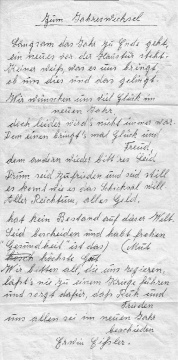 Zum Jahreswechsel
Langsam das Jahr zu Ende geht,
ein neues vor der Haustür steht.
Keiner weiß, was es uns bringt,
ob uns dies und das gelingt.
Wir wünschen uns viel Glück im
neuen Jahr
doch leider wird's nicht immer wahr.
Dem einen bringt's mal Glück und
Freud,
dem andern wieder bittres Leid.
Drum seid zufrieden und seid still
es kommt wie es das Schicksal will
Aller Reichtum, alles Geld.
hat kein Bestand auf dieser Welt.
Seid bescheiden und habt
Gesundheit ist das
höchste Gut
Wir bitten all, die uns regieren,
laßt's nie zu einem Kriege führen
und sorgt dafür, daß Ruh und
Frieden
uns allen sei im neuen Jahr
beschieden
Erwin